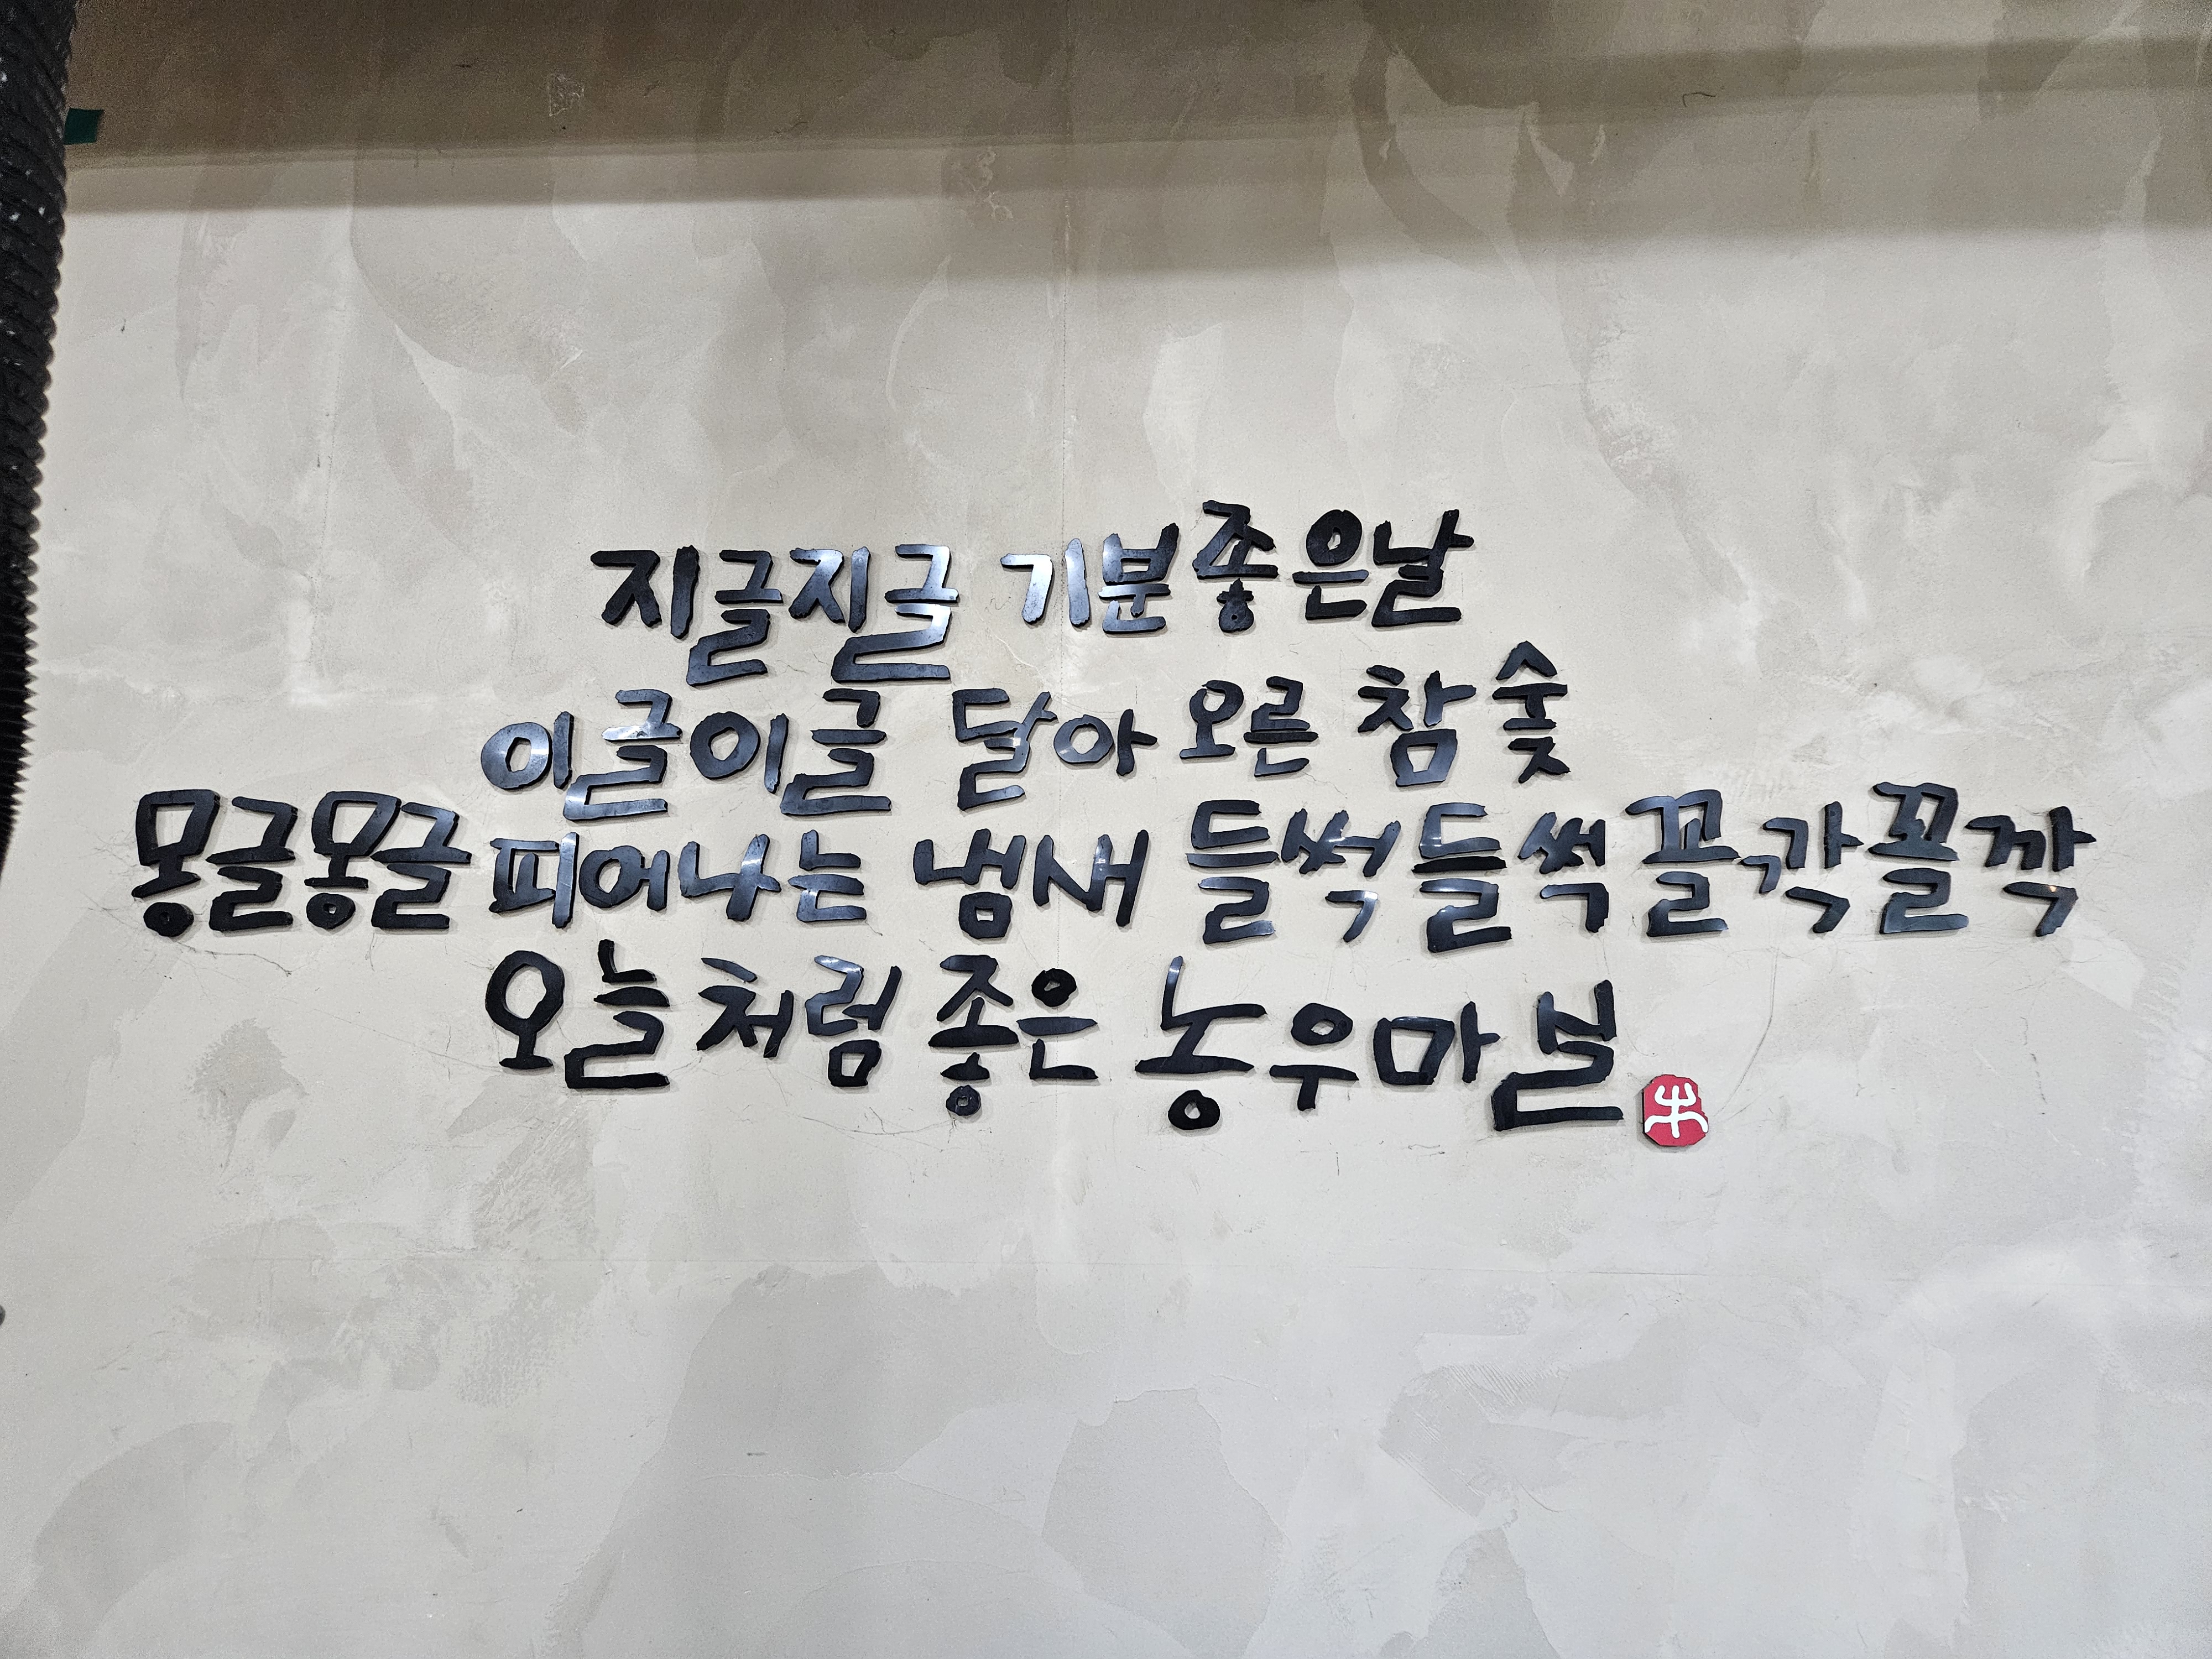 지글지글 기분좋은날
이글이글 달아 오른 참숯
몽글몽글 피어나는 냄새 들썩들썩 꼴깍꼴깍
오늘처럼 좋은 농우마실